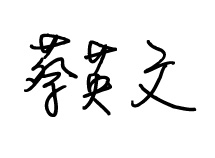 蔡英文